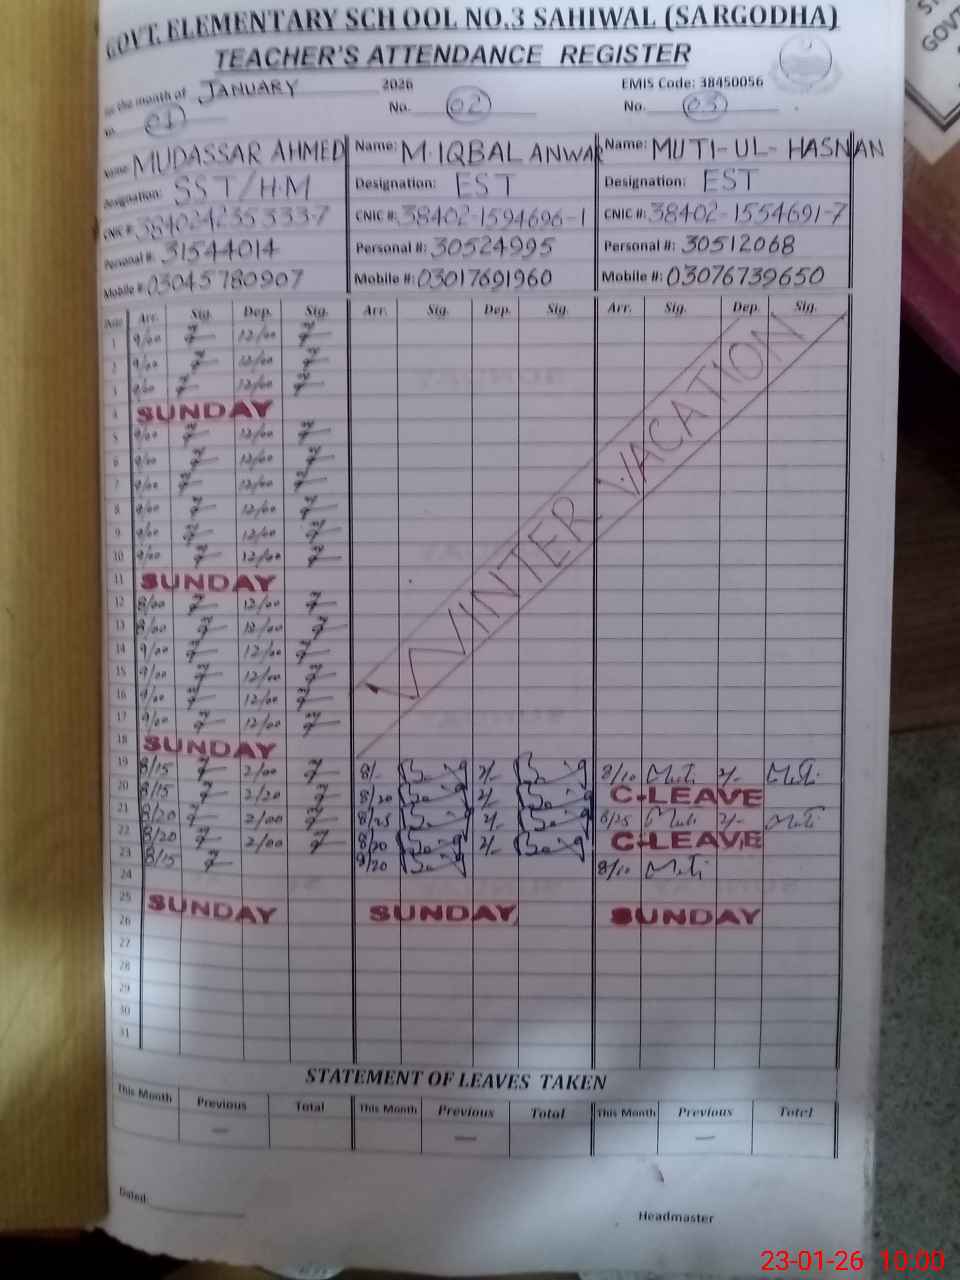 GOVT. ELEMENTARY SCHOOL NO.3 SAHIWAL (SARGODHA)
TEACHER'S ATTENDANCE REGISTER
the month of JANUARY 2026 EMIS Code: 38450056
01 No. 02 No. 03
Name: MUDASSAR AHMED Name: M. IQBAL ANWAR Name: MUTI-UL-HASNAN
Designation: SST/H.M Designation: EST Designation: EST
CNIC #: CNIC #: 38402-1594696-1 CNIC #: 38402-1554691-7
Personal #: 31544014 Personal #: 30524995 Personal #: 30512068
Mobile #: 03045780907 Mobile #: 03017691960 Mobile #: 03076739650
Arr. Sig. Dep. Sig. Arr. Sig. Dep. Sig. Arr. Sig. Dep. Sig.
1 9/00 12/00
2 9/00 12/00
3 9/00 12/00
4 SUNDAY
5 9/00 12/00
6 9/00 12/00
7 9/00 12/00
8 9/00 12/00
9 9/00 12/00
10 9/00 12/00
11 SUNDAY
12 8/00 12/00
13 8/00 12/00
14 9/00 12/00
15 9/00 12/00
16 9/00 12/00
17 9/00 12/00
18 SUNDAY
WINTER VACATION
19 8/15 2/00 8/- 2/- 8/10 2/-
20 8/15 2/20 8/20 2/ C-LEAVE
21 8/20 2/00 8/25 2/- 8/25 2/-
22 8/20 2/00 8/20 2/- C-LEAVE
23 8/15 8/10
24
25 SUNDAY SUNDAY SUNDAY
26
27
28
29
30
31
STATEMENT OF LEAVES TAKEN
This Month Previous Total This Month Previous Total This Month Previous Total
— — —
Dated:
Headmaster
23-01-26 10:00